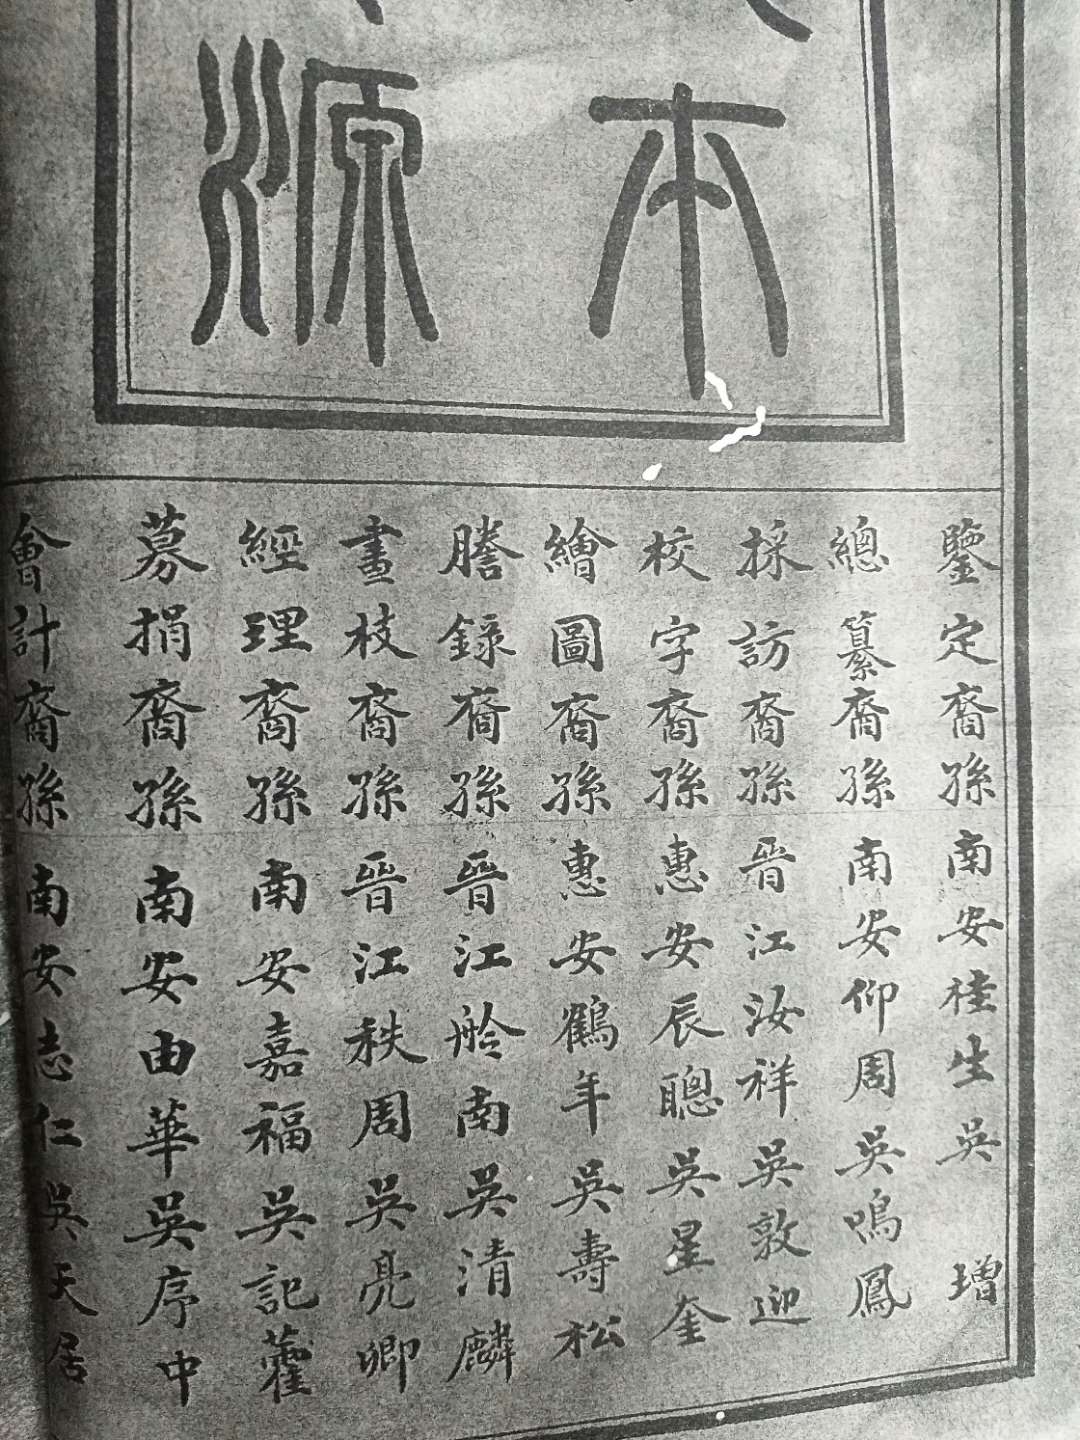 本
源
鑒定裔孫南安桂生吳增
總纂裔孫南安仰周吳鳴鳳
採訪裔孫晉江汝祥吳敦迎
校字裔孫惠安辰聰吳星奎
繪圖裔孫惠安鶴年吳壽松
謄錄裔孫晉江舲南吳清麟
畫枝裔孫晉江秩周吳亮卿
經理裔孫南安嘉福吳記藿
募捐裔孫南安由華吳序中
會計裔孫南安志仁吳天居